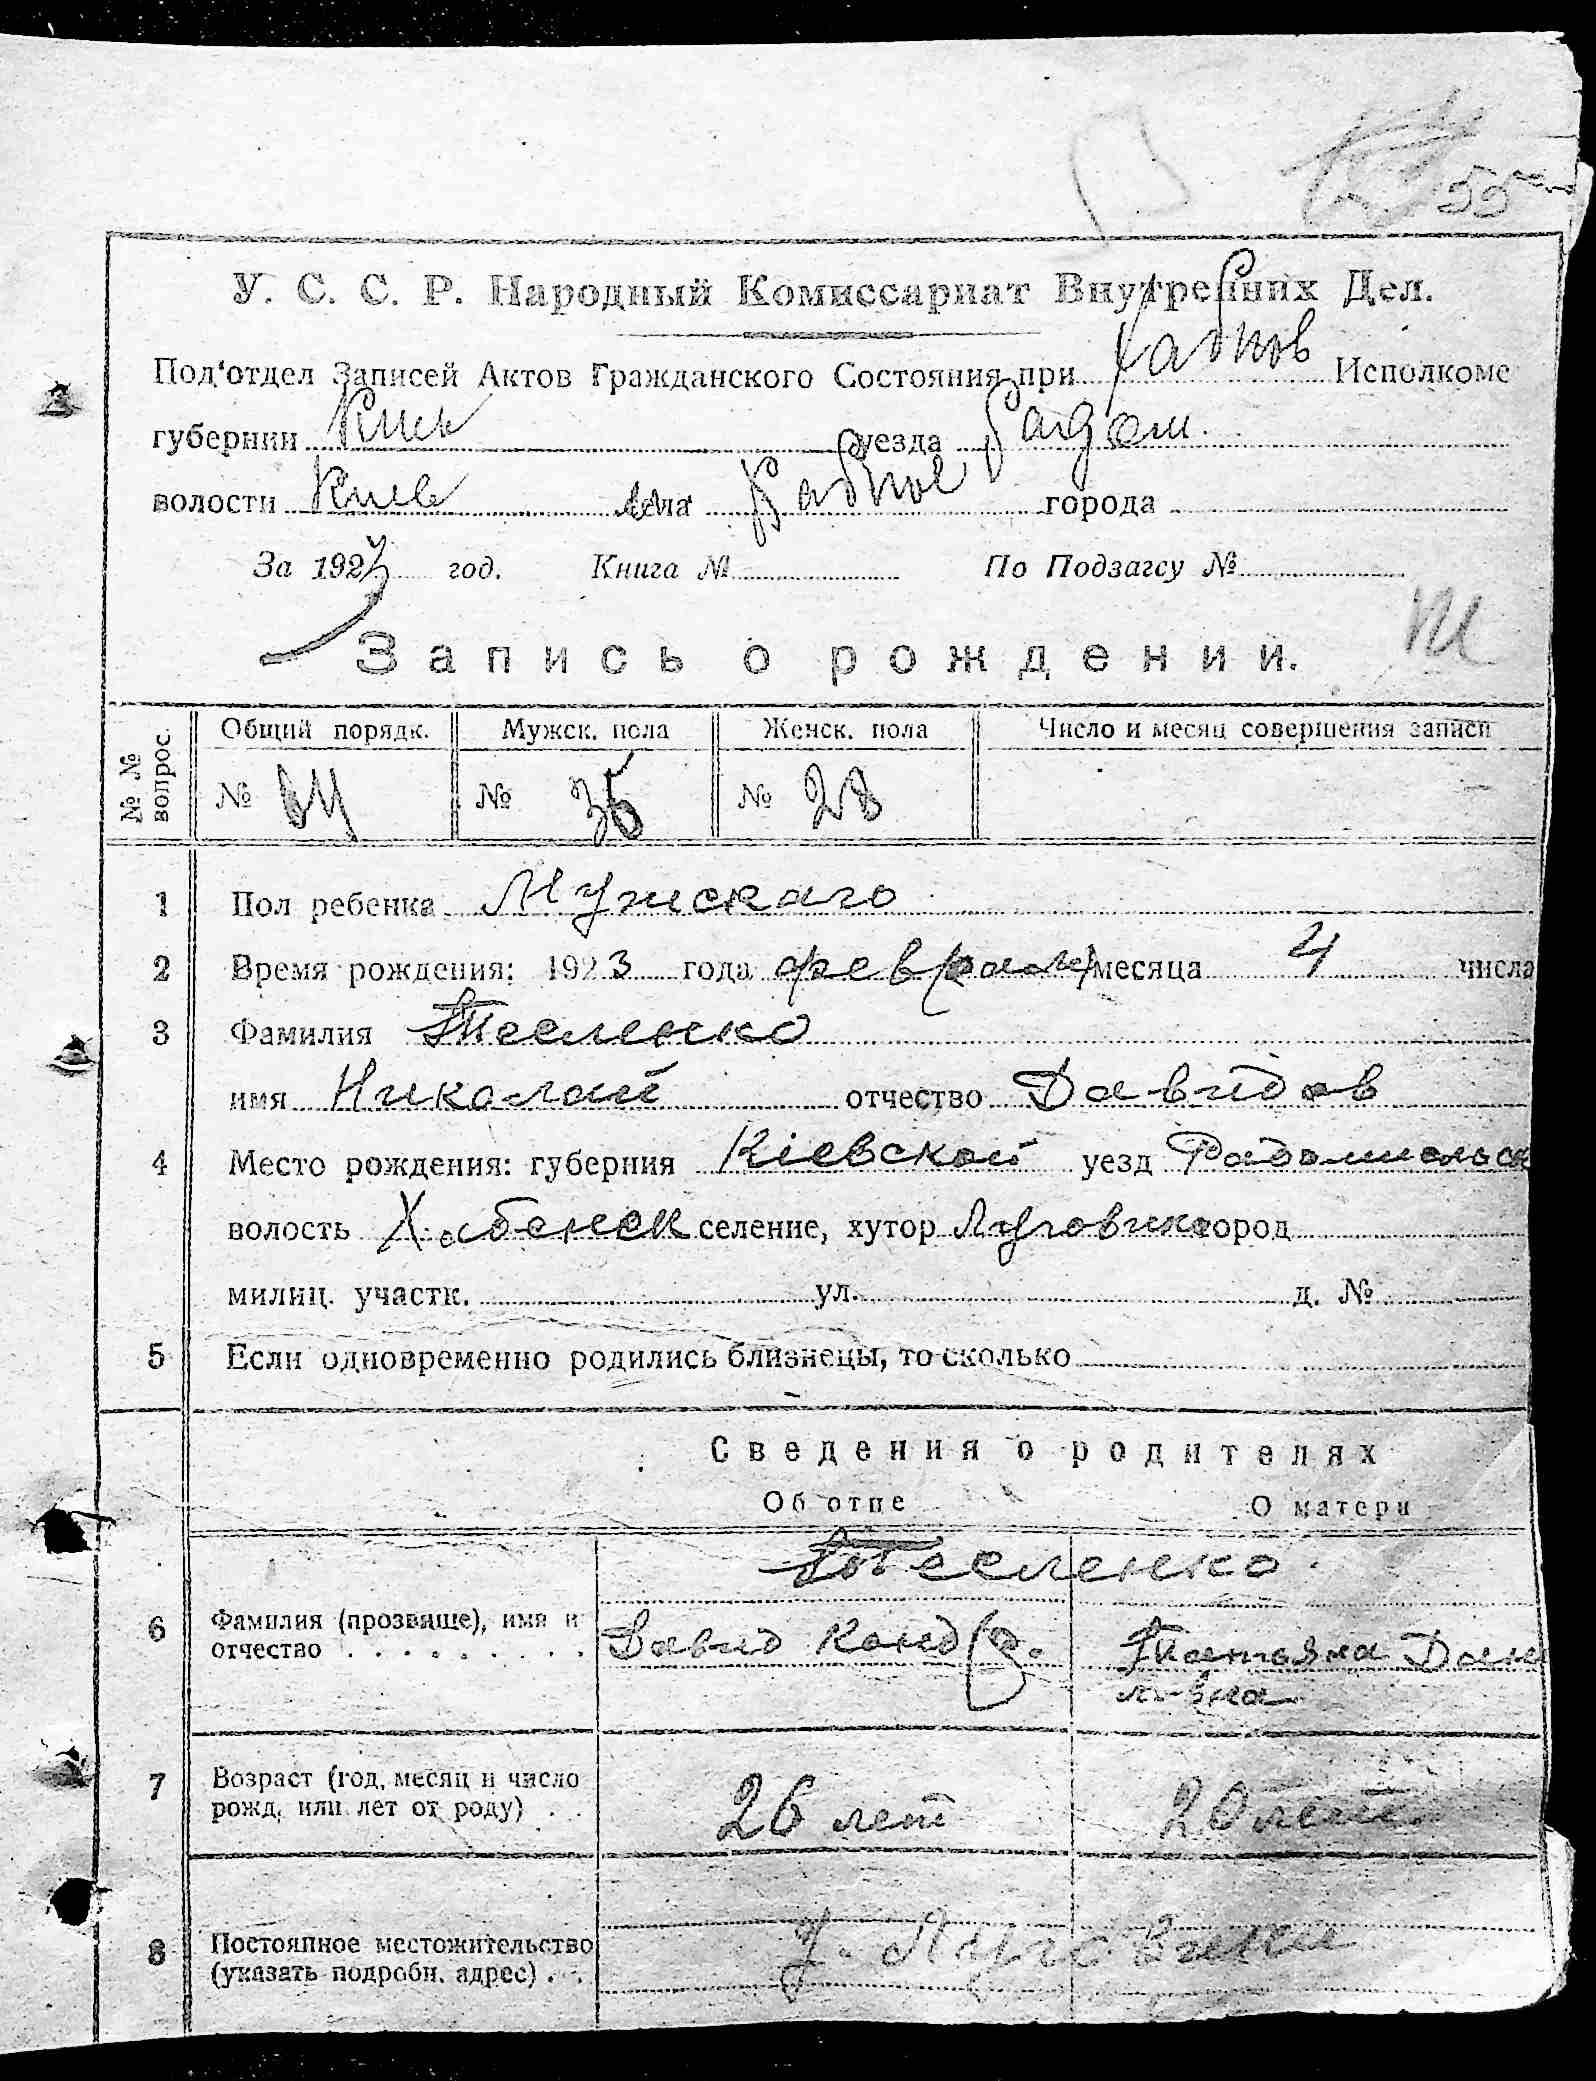 55
У. С. С. Р. Народный Комиссариат Внутренних Дел.
Под'отдел Записей Актов Гражданского Состояния при Хабнов Исполкоме
губернии Киев уезда Радом.
волости Киев села Хабное города
За 1923 год. Книга № По Подзагсу №
Запись о рождении.
№ № вопрос. Общий порядк. Мужск. пола Женск. пола Число и месяц совершения записи
№ № 36 № 28
1 Пол ребенка Мужскаго
2 Время рождения: 1923 года февраля месяца 4 числа
3 Фамилия Тесленко
имя Николай отчество Давидов
4 Место рождения: губерния Кіевской уезд Радомысльск
волость Хабенск селение, хутор Луговики город
милиц. участк. ул. д. №
5 Если одновременно родились близнецы, то сколько
Сведения о родителях
Об отце О матери
Тесленко
6 Фамилия (прозвище), имя и отчество Давид Кондр. Татьяна Дани
ловна
7 Возраст (год, месяц и число рожд. или лет от роду) 26 лет 20 лет
8 Постоянное местожительство (указать подробн. адрес) Луговики